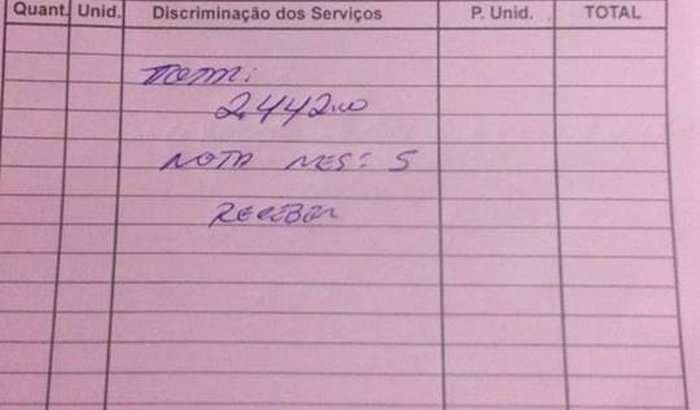 Quant. Unid. Discriminação dos Serviços P. Unid. TOTAL
2.442,00
NOTA MES: 5
RECEBER